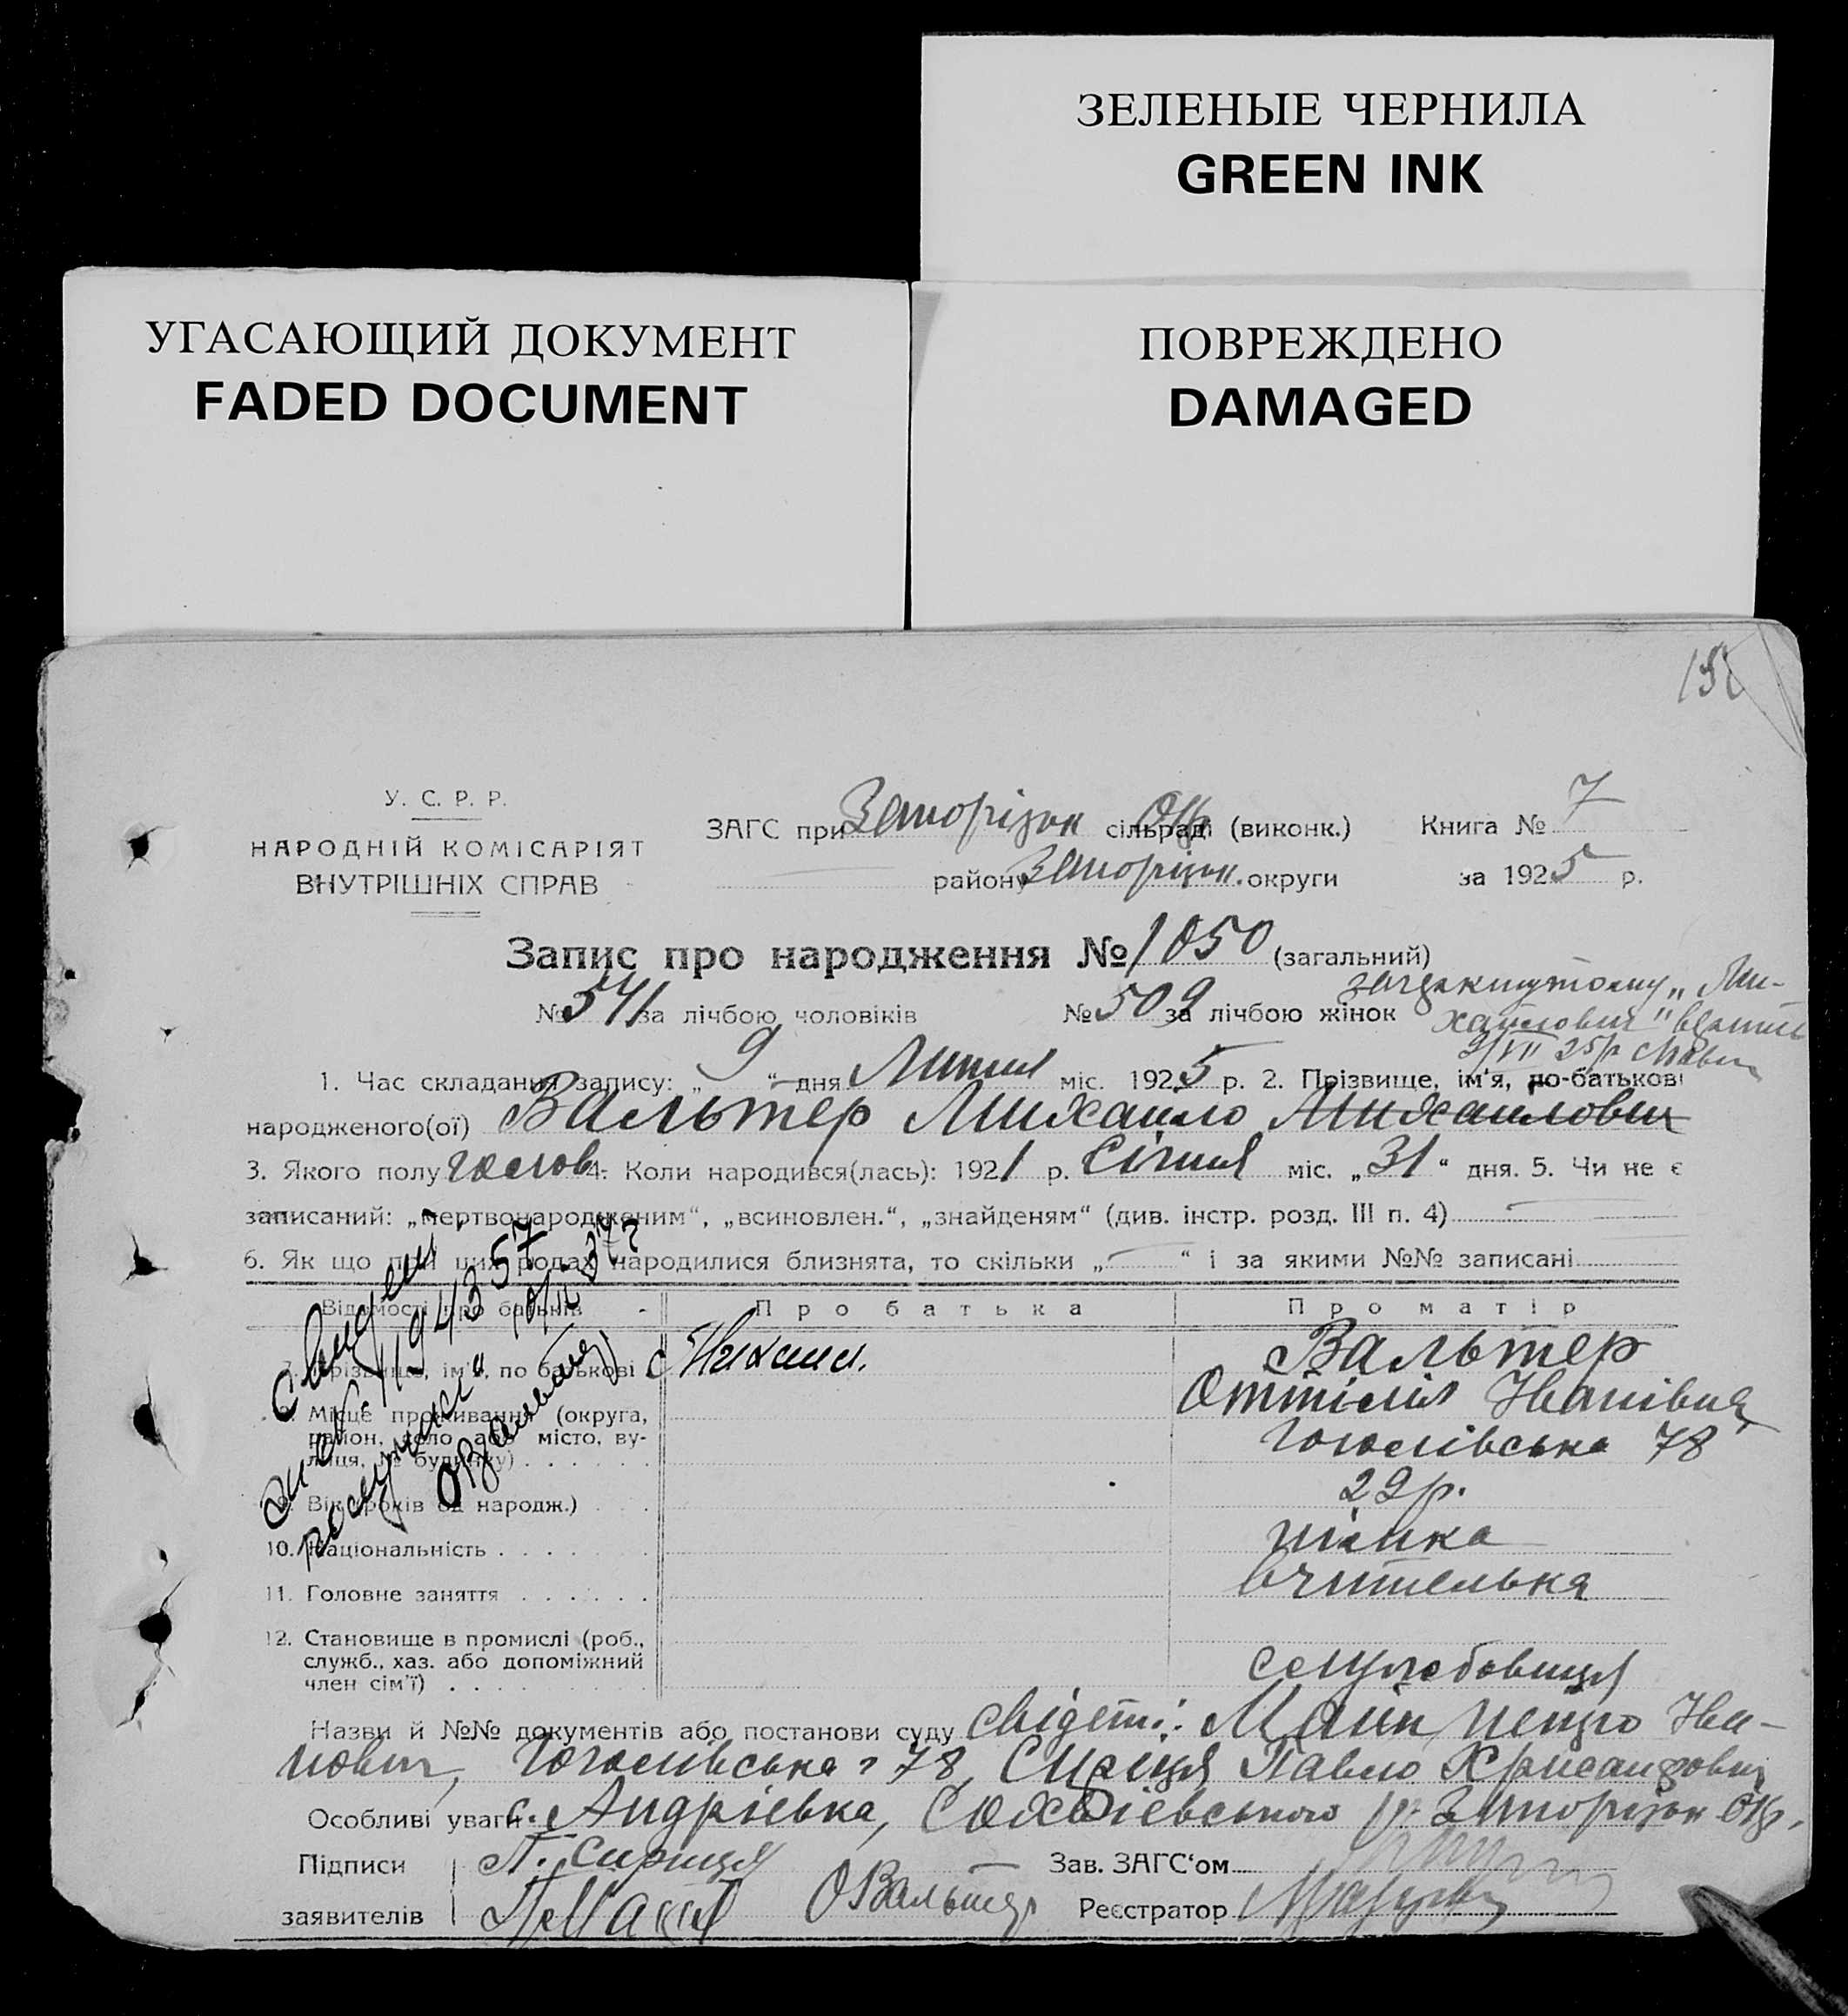 ЗЕЛЕНЫЕ ЧЕРНИЛА
GREEN INK
УГАСАЮЩИЙ ДОКУМЕНТ
FADED DOCUMENT
ПОВРЕЖДЕНО
DAMAGED
У. С. Р. Р.
НАРОДНІЙ КОМІСАРІЯТ
ВНУТРІШНІХ СПРАВ
ЗАГС при Запорізьк Окр сільраді (виконк.) Книга № 7
району Запорізьк. округи за 1925 р.
Запис про народження № 1050 (загальний)
№ 541 за лічбою чоловіків № 509 за лічбою жінок
закреслутому „Ми-
хайлович" вірити
9/VII 25р
1. Час складання запису: „9“ дня Липня міс. 1925 р. 2. Прізвище, ім'я, по-батькові
народженого(ої) Вальтер Михайло Михайлович
3. Якого полу чолов. 4. Коли народився(лась): 1921 р. Січня міс. „31“ дня. 5. Чи не є
записаний: „мертвонародженим“, „всиновлен.“, „знайденям“ (див. інстр. розд. III п. 4)
6. Як що при цих родах народилися близнята, то скільки „ “ і за якими №№ записані
Відомості про батьків Про батька Про матір
7. Прізвище, ім'я, по батькові Вальтер
Оттілія Іванівна
8. Місце проживання (округа, район, село або місто, вулиця, № будинку) Гоголівська 78
9. Вік (років од народж.) 29р.
10. Національність німка
11. Головне заняття вчителька
12. Становище в промислі (роб., служб., хаз. або допоміжний член сім'ї) службовиця
Назви й №№ документів або постанови суду свідетці:
нович, Гоголівська 78, Сириця Павло Хрисанфович
Особливі уваги с. Андрієвка, Запорізьк Окр.
Підписи П. Сириця Зав. ЗАГС‘ом
заявителів ОВальтер Реєстратор